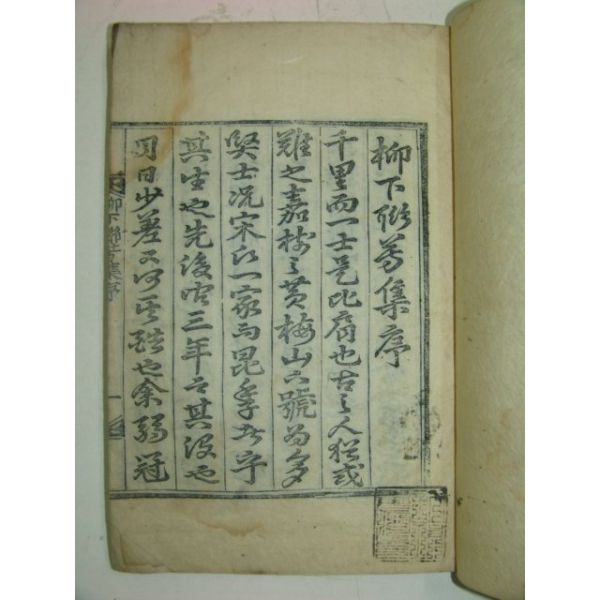 柳下聯芳集序
千里而一士是比肩也古之人猶或
難之嘉樹之黃梅山亦號爲多
賢士況宋氏一家而昆季者乎
其生也先後啻三年而其沒也
月日少差又何其酷也余弱冠
柳下聯芳集序
一